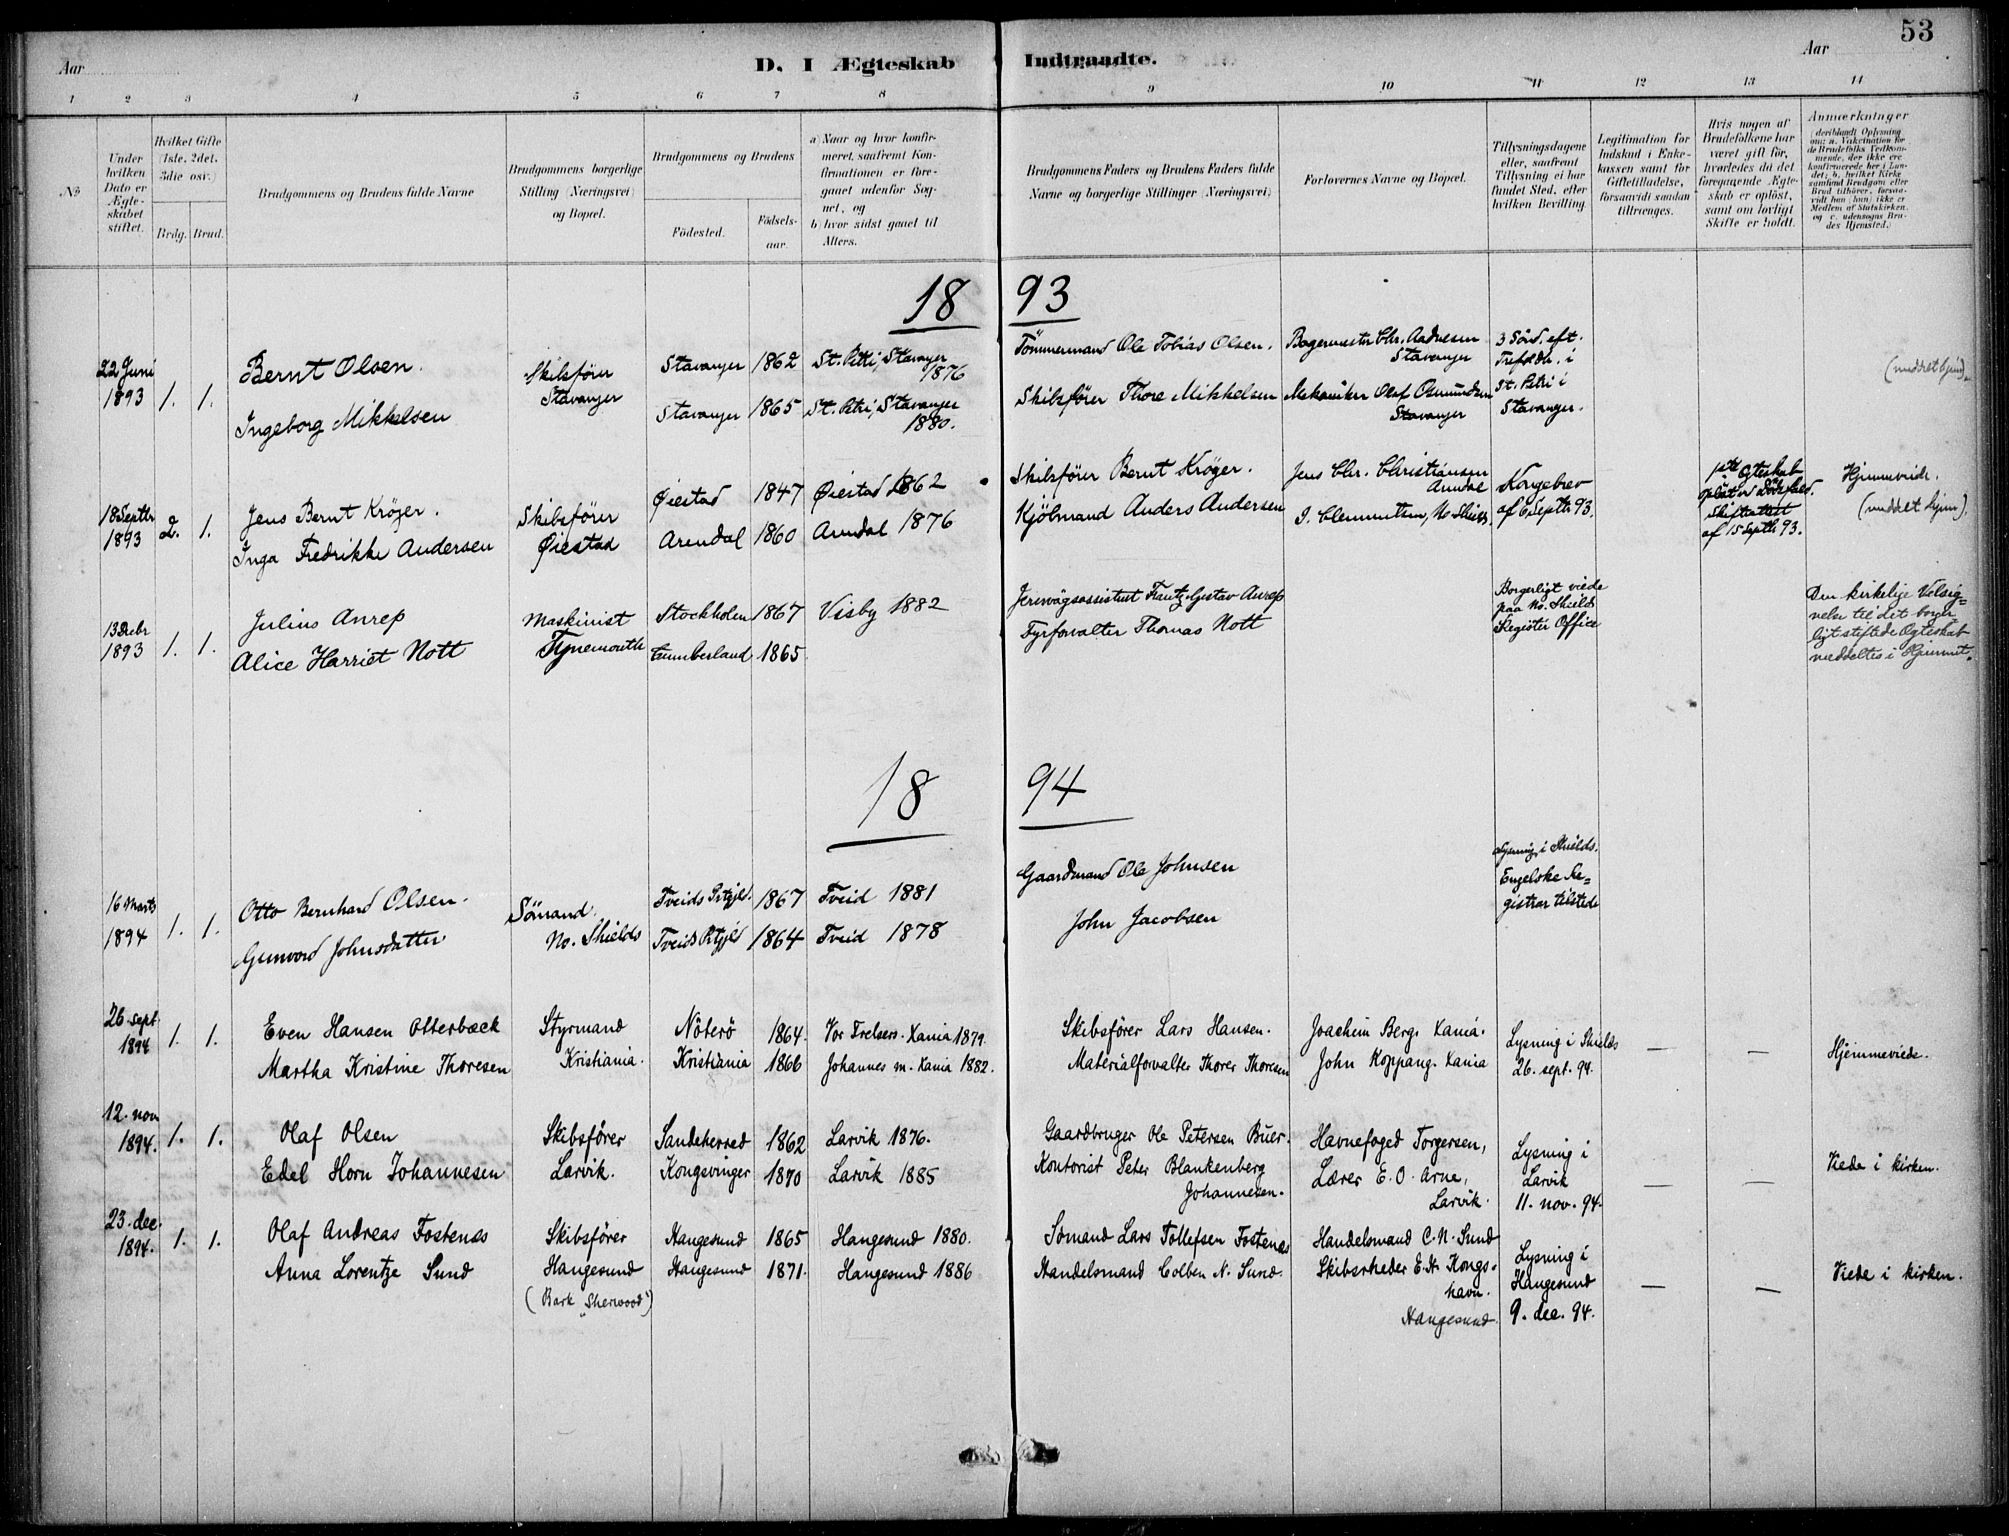 53
Aar
D. I Ægteskab Indtraadte.
Aar
1 2 3 4 5 6 7 8 9 10 11 12 13 14
No
Under hvilken Dato er Ægteskabet stiftet.
Hvilket Gifte (1ste, 2det, 3die osv.)
Brdg. Brud.
Brudgommens og Brudens fulde Navne
Brudgommens borgerlige Stilling (Næringsvei) og Bopæl.
Brudgommens og Brudens
Fødested.
Fødselsaar.
a) Naar og hvor konfirmeret, saafremt Konfirmationen er foregaaet udenfor Sognet, og
b) hvor sidst gaaet til Alters.
Brudgommens Faders og Brudens Faders fulde Navne og borgerlige Stillinger (Næringsvei)
Forlovernes Navne og Bopæl.
Tillysningsdagene eller, saafremt Tillysning ei har fundet Sted, efter hvilken Bevilling.
Legitimation for Indskud i Enkekassen samt for Giftetilladelse, forsaavidt saadan tiltrænges.
Hvis nogen af Brudefolkene har været gift før, hvorledes da det foregaaende Ægteskab er opløst, samt om lovligt Skifte er holdt.
Anmærkninger (deriblandt Oplysning om: a. Vakcination for de Brudefolks Vedkommende, der ikke ere konfirmerede her i Landet; b. hvilket Kirkesamfund Brudgom eller Brud tilhører, forsaavidt han (hun) ikke er Medlem af Statskirken, og c. udensogns Brudes Hjemsted.)
18 93
22 Juni 1893 1. 1.
Bernt Olsen. Skibsfører Stavanger 1862 St. Petri, Stavanger 1876
Tömmermand Ole Tobias Olsen. Bagermester Chr. Aadnesen Stavanger
Ingeborg Mikkelsen Stavanger Stavanger 1865 St. Petri, Stavanger 1880.
Skibsfører Thore Mikkelsen Mekaniker Olaf Osmundsen Stavanger
3 Sönd. eft. Trefoldh. i St. Petri i Stavanger.
18 Septbr 1893 2. 1.
Jens Bernt Kröger. Skibsfører Øiestad 1847 Øiestad 1862
Skibsfører Bernt Kröger. Jens Chr. Christiansen Arendal
Inga Fredrikke Andersen Øiestad Arendal 1860 Arendal 1876
Kjölmand Anders Andersen J. Clemmetsen, No Shields
Kongebrev af 6 Septbr 93.
1ste Ægteskab oplöst ved Dödsfald. Skifteattest af 15 Septb. 93.
Hjemmeviede.
13 Decbr 1893 1. 1.
Julius Anrep Maskinist Stockholm 1867 Visby 1882
Jernvägsassistent Frantz Gustav Anrep
Alice Harriet Nott Tynemouth Cumberland 1865
Fyrforvalter Thomas Nott
Borgerligt viede paa No. Shields Register Office
Den kirkelige Velsignelse til det borgerligt stiftede Ægteskab meddeltes i Hjemmet.
18 94
16 Marts 1894 1. 1.
Otto Bernhard Olsen. Sömand. Tveids Prstgjeld. 1867 Tveid 1881
Gaardmand Ole Johnsen
Gunvord Johnsdatter No. Shields Tveids Prstgjeld 1864 Tveid 1878
John Jacobsen
Lysning i Shields. Engelske Registrar tilstede
26. sept. 1894 1. 1.
Even Hansen Otterbæck Styrmand Nöterö 1864. Vor Frelsers. Xania 1879.
Skibsförer Lars Hansen. Joachim Berg. Xania.
Martha Kristine Thoresen Kristiania. Kristiania 1866 Johannes m. Xania 1882.
Materialforvalter Thorer Thoresen John Koppang. Xania
Lysning i Shields 26. sept. 94. — — Hjemmeviede.
12. nov. 1894. 1. 1.
Olaf Olsen Skibsförer Sandeherred 1862 Larvik 1876.
Gaardbruger Ole Petersen Buer. Havnefoged Torgersen,
Edel Horn Johannesen Larvik. Kongsvinger 1870 Larvik 1885
Kontorist Peter Blankenberg Johannesen. Lærer E. O. Arne, Larvik.
Lysning i Larvik 11. nov. 94. — — Viede i kirken.
23. dec. 1894. 1. 1.
Olaf Andreas Fostenæs Skibsförer Haugesund 1865 Haugesund 1880.
Sömand Lars Tollefsen Fostenæs Handelsmand C. N. Sund
Anna Lorentze Sund Haugesund Haugesund 1871. Haugesund 1886
Handelsmand Colben N. Sund. Skibsrheder E. H. Kongshavn. Haugesund.
(Bark „Sherwood")
Lysning i Haugesund 9. dec. 94. — — Viede i kirken.